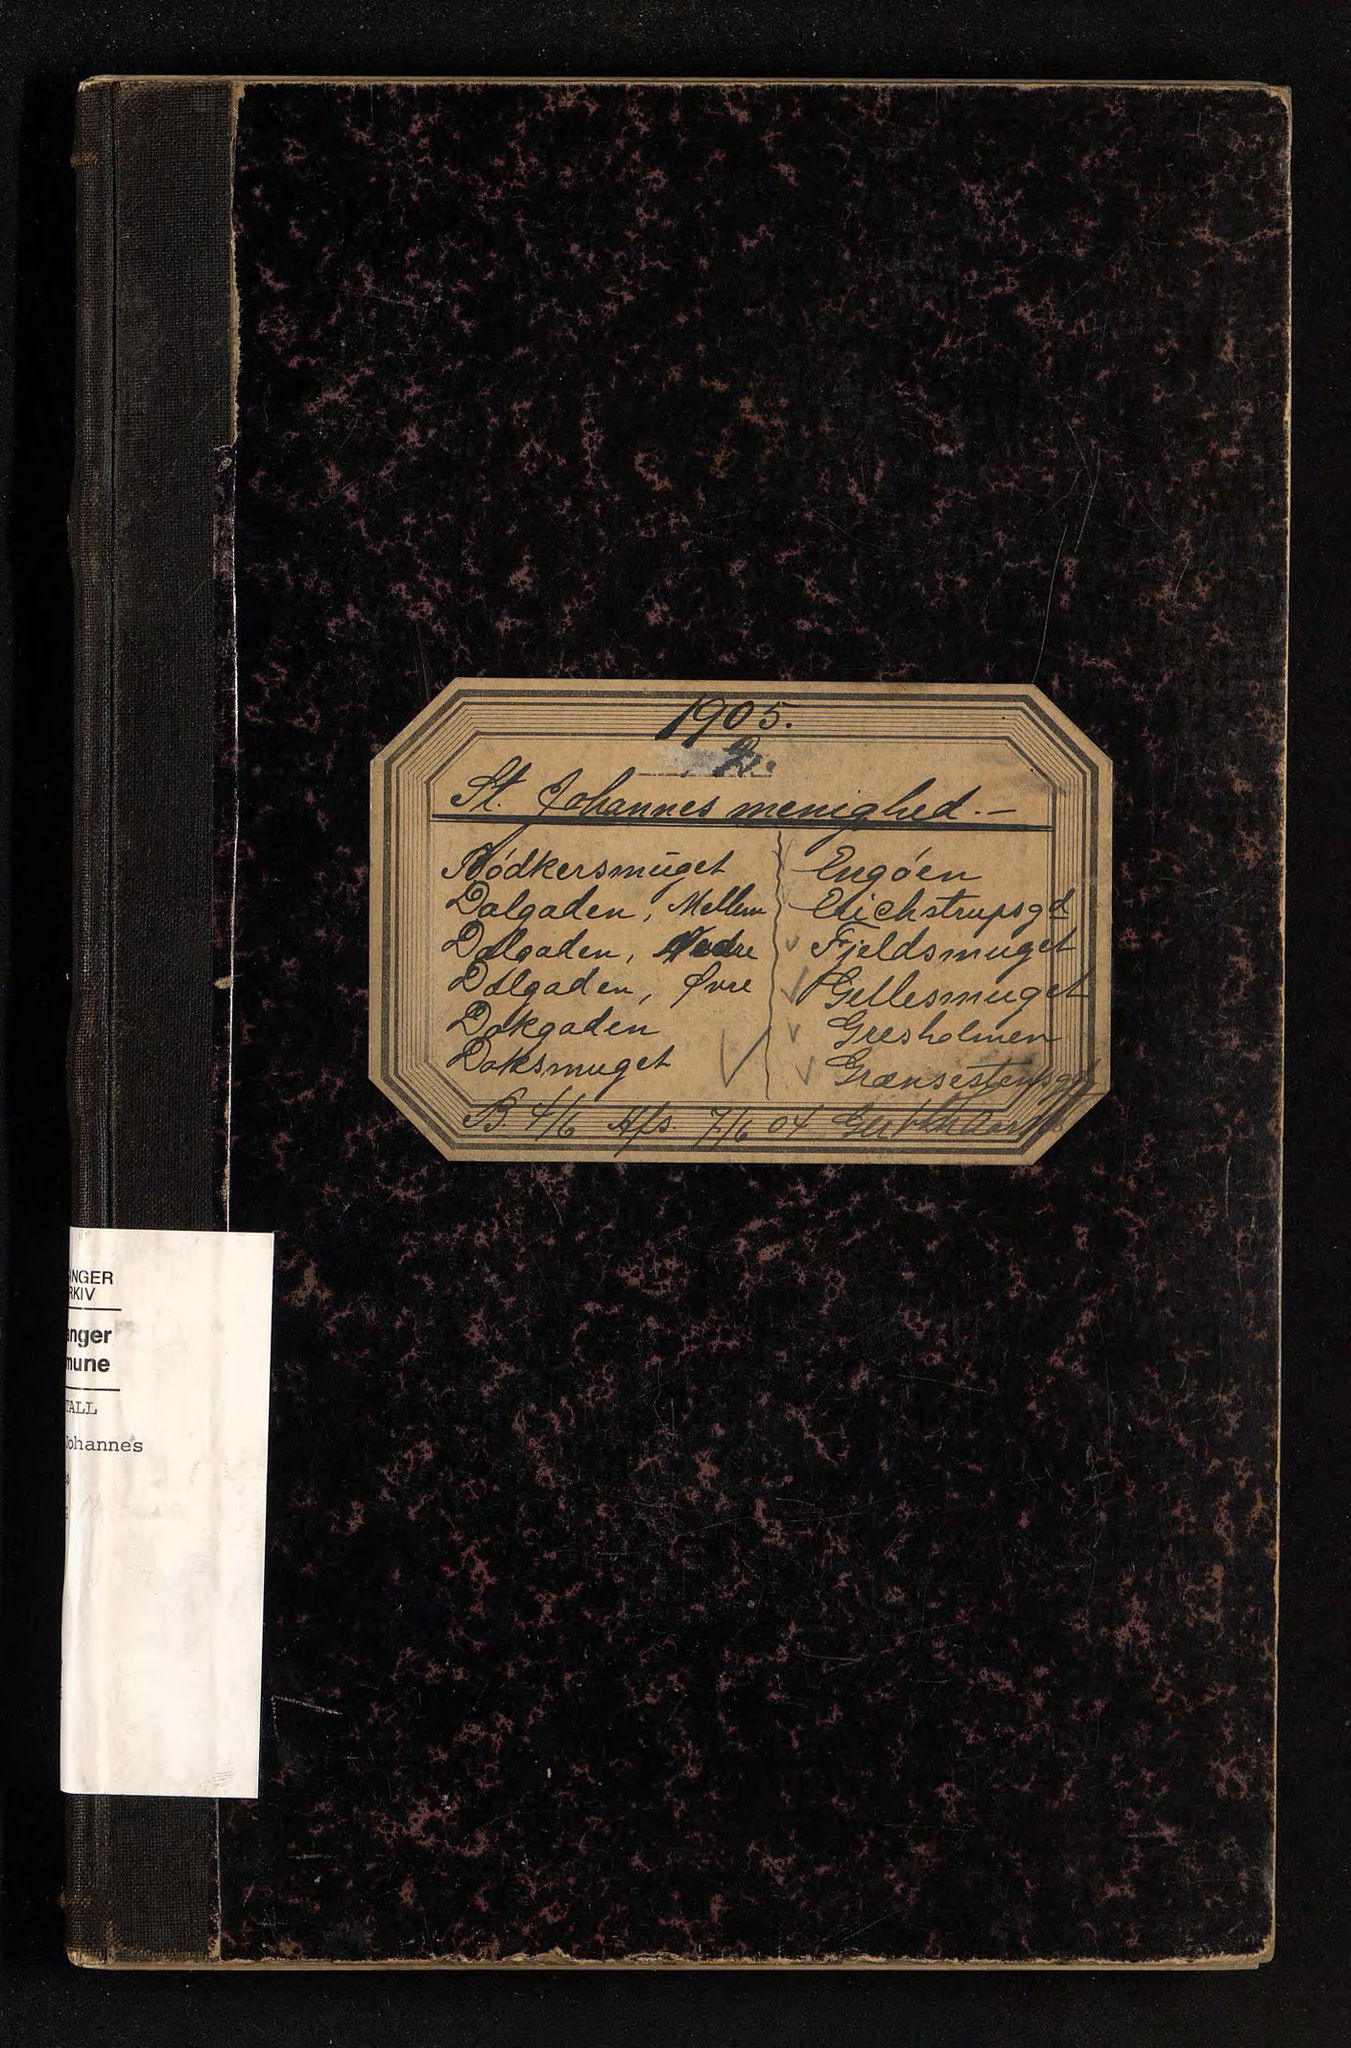 1905.
2.
St. Johannes menighed.-
Bödkersmuget
Dalgaden, Mellem
Dalgaden, Nedre
Dalgaden, Øvre
Dokgaden
Doksmuget
Engöen
Erichstrupsgd
Fjeldsmuget
Gellesmuget
Gresholmen
Grænsestensgd
B. 4/6 Afs. 7/6 04
ANGER
RKIV
anger
mune
TALL
Johannes